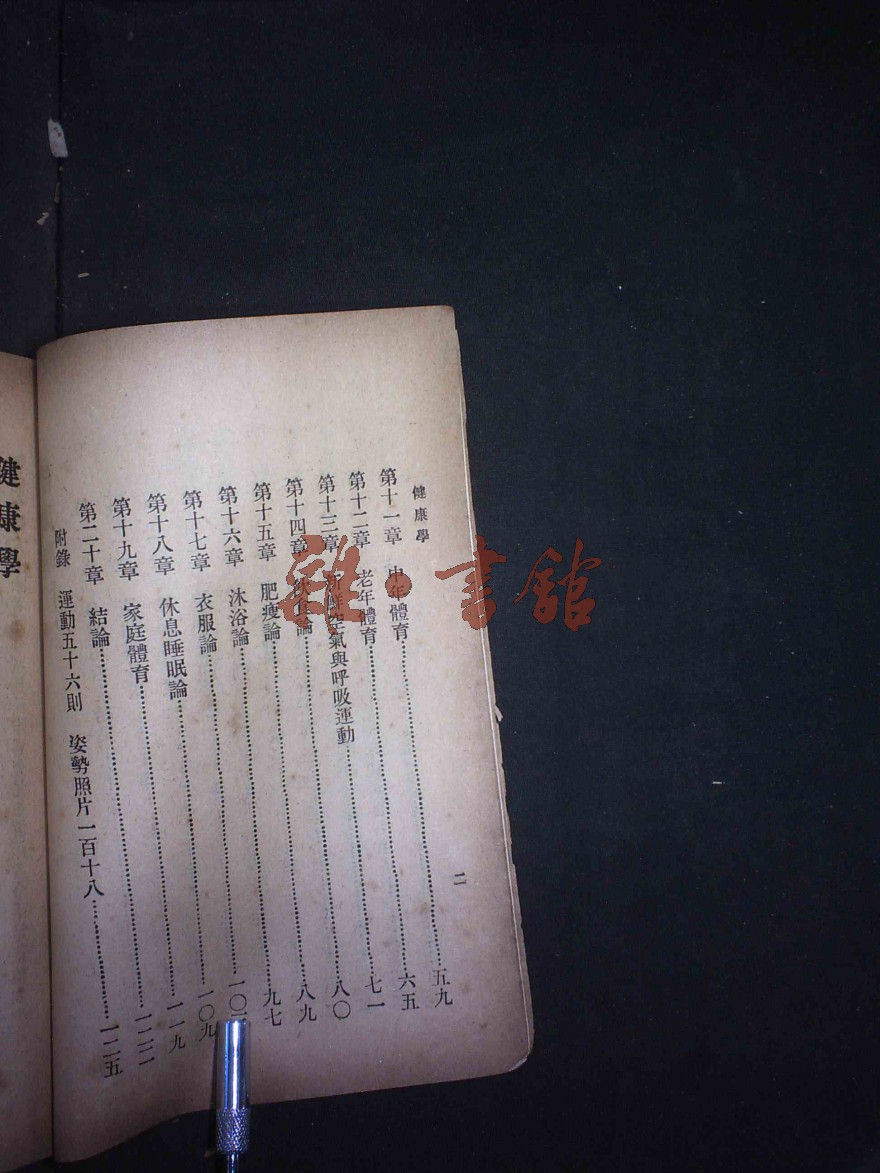 健康學
二
第十一章 中年體育……五九
第十二章 老年體育……六五
第十三章 新鮮空氣與呼吸運動……七一
第十四章 飲食論……八〇
第十五章 肥瘦論……八九
第十六章 沐浴論……九七
第十七章 衣服論……一〇
第十八章 休息睡眠論……一〇九
第十九章 家庭體育……一一九
第二十章 結論……一二二
附錄 運動五十六則 姿勢照片一百十八……一二五
健康學
雜·書館